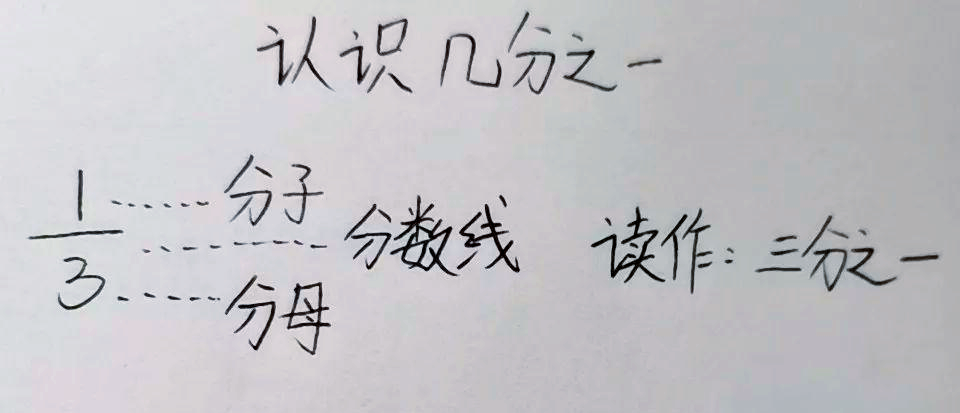 认识几分之一
1……分子
———………分数线 读作：三分之一
3……分母